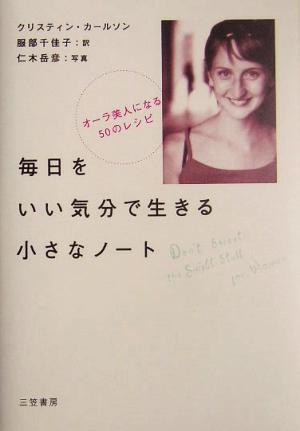 クリスティン・カールソン
服部千佳子：訳
仁木岳彦：写真
オーラ美人になる
50のレシピ
毎日を
いい気分で生きる
小さなノート
Don't Sweat
the Small Stuff
for Women
三笠書房